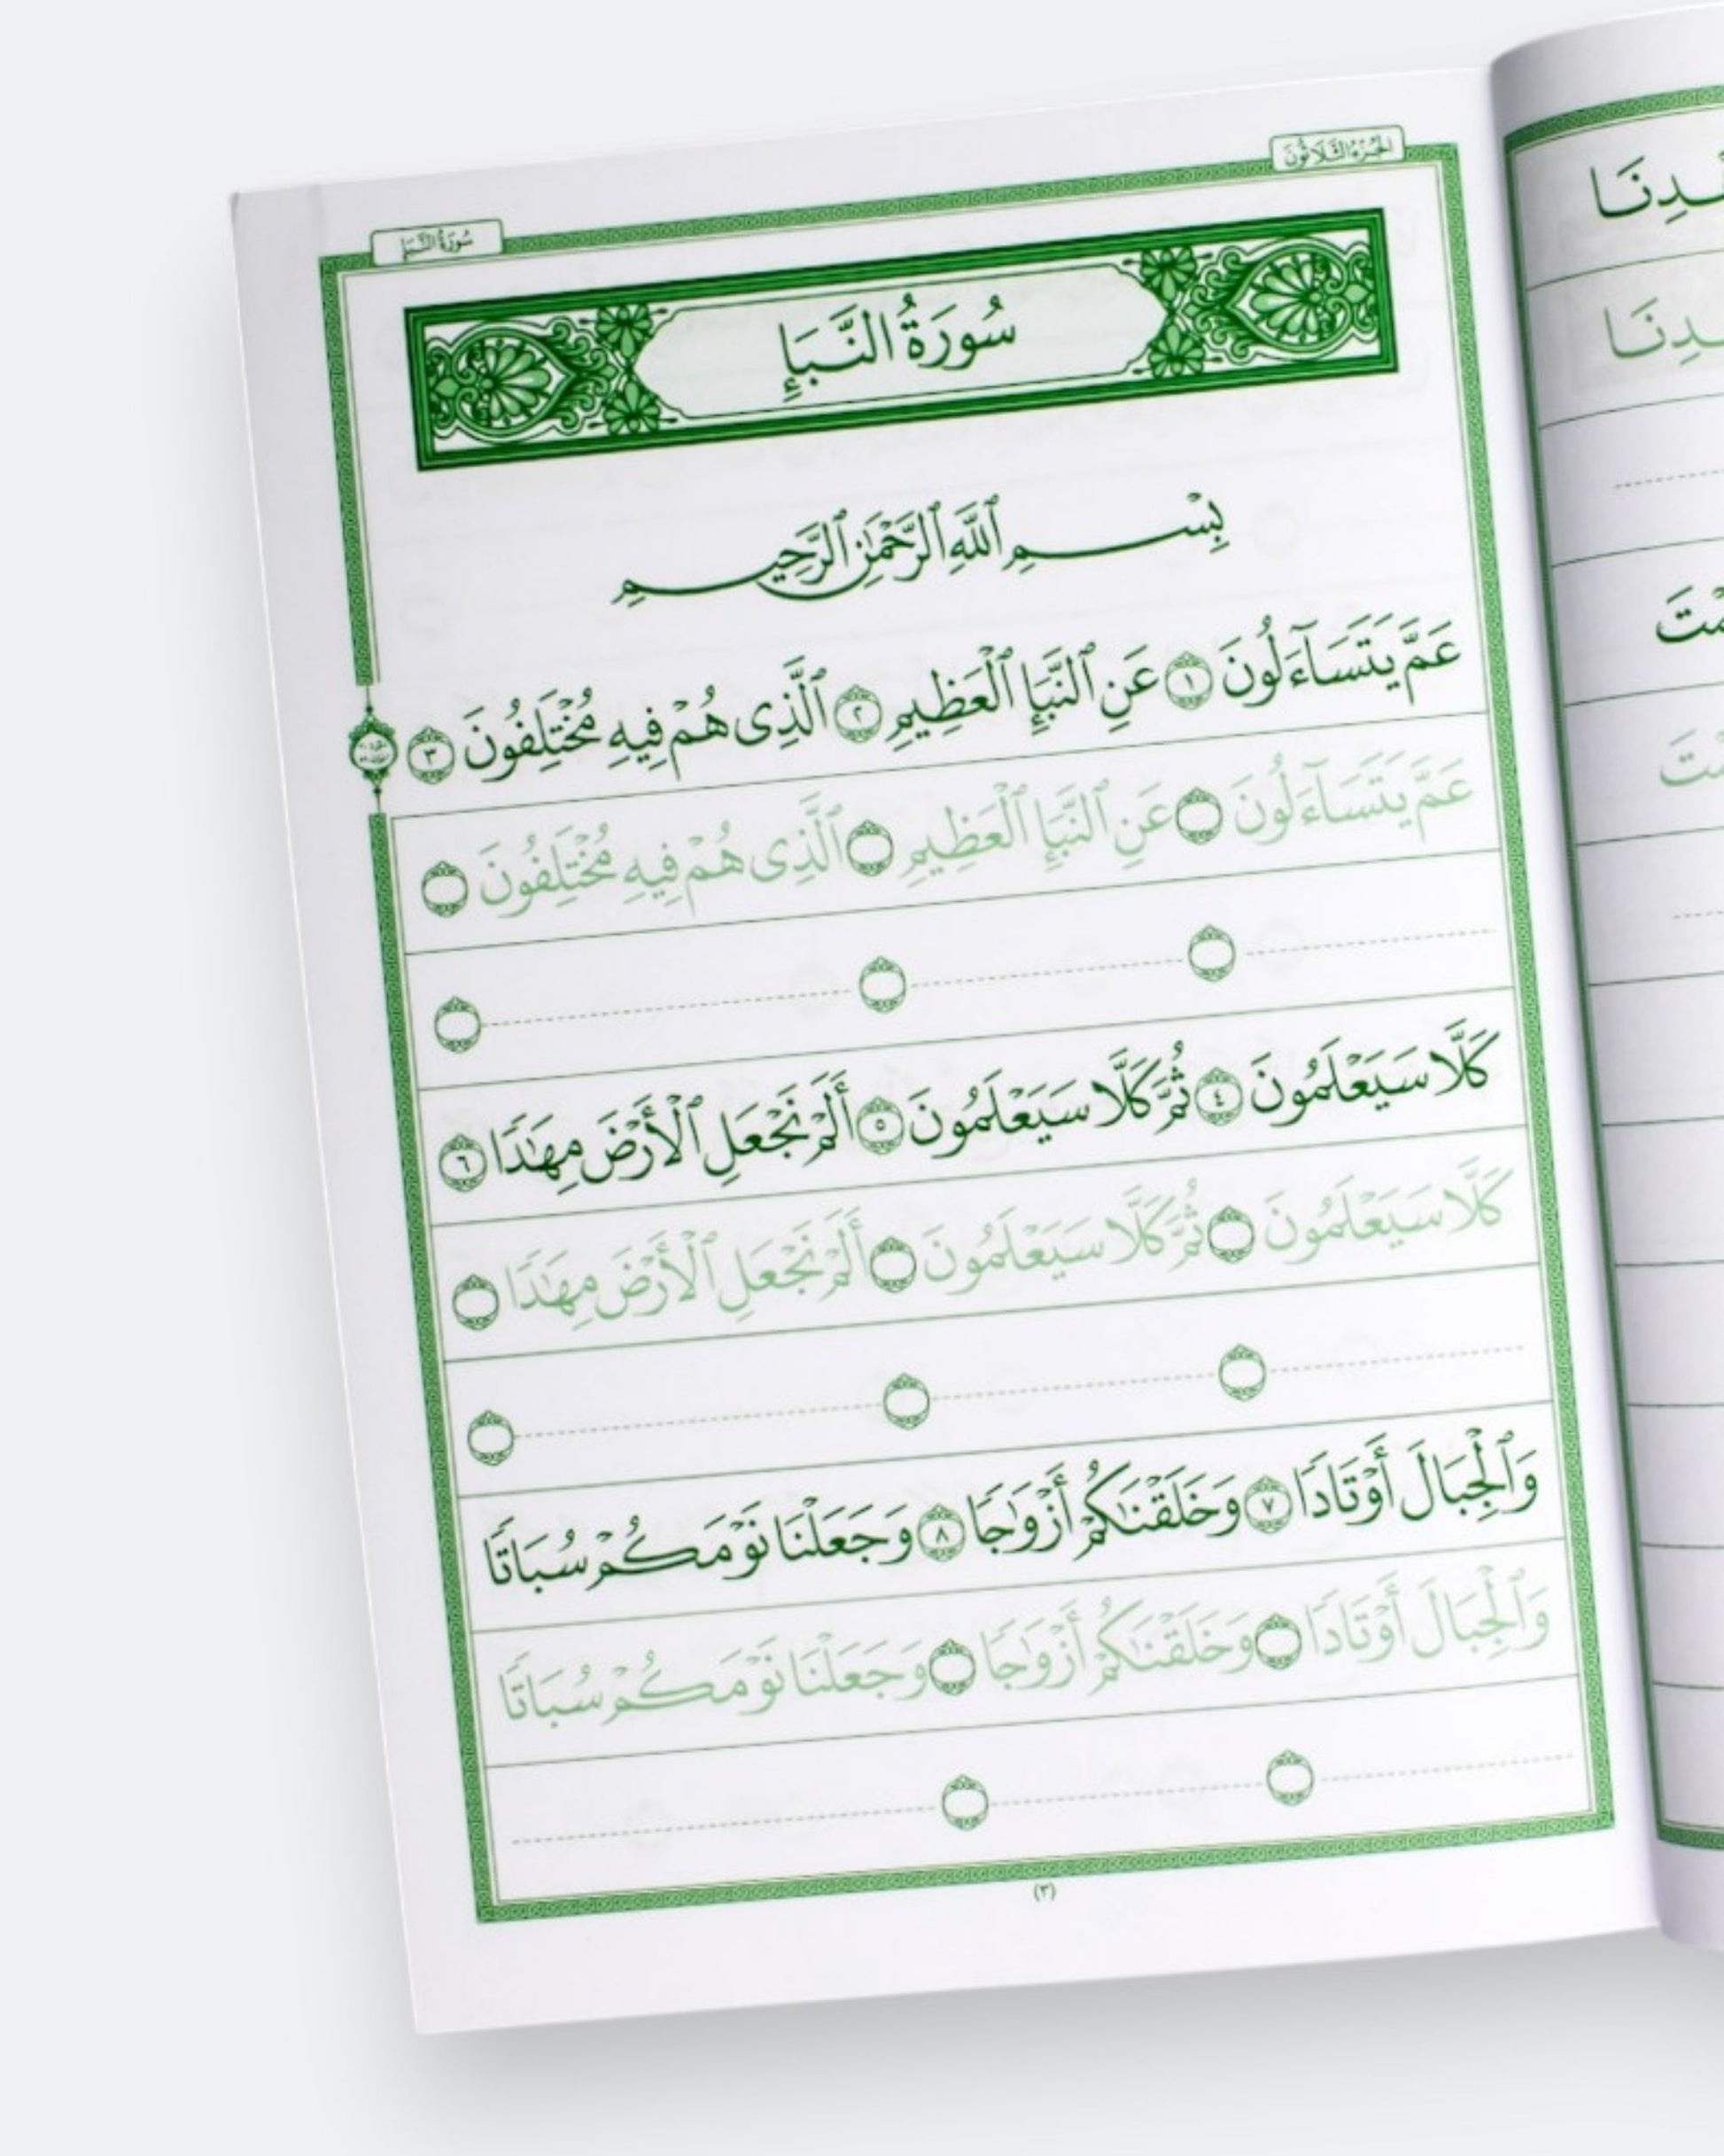 الجزء الثلاثون
سورة النبإ
سُورَةُ النَّبَإِ
بِسْمِ ٱللَّهِ ٱلرَّحْمَٰنِ ٱلرَّحِيمِ
عَمَّ يَتَسَآءَلُونَ ١ عَنِ ٱلنَّبَإِ ٱلْعَظِيمِ ٢ ٱلَّذِى هُمْ فِيهِ مُخْتَلِفُونَ ٣
عَمَّ يَتَسَآءَلُونَ عَنِ ٱلنَّبَإِ ٱلْعَظِيمِ ٱلَّذِى هُمْ فِيهِ مُخْتَلِفُونَ
كَلَّا سَيَعْلَمُونَ ٤ ثُمَّ كَلَّا سَيَعْلَمُونَ ٥ أَلَمْ نَجْعَلِ ٱلْأَرْضَ مِهَٰدًا ٦
كَلَّا سَيَعْلَمُونَ ثُمَّ كَلَّا سَيَعْلَمُونَ أَلَمْ نَجْعَلِ ٱلْأَرْضَ مِهَٰدًا
وَٱلْجِبَالَ أَوْتَادًا ٧ وَخَلَقْنَٰكُمْ أَزْوَٰجًا ٨ وَجَعَلْنَا نَوْمَكُمْ سُبَاتًا
وَٱلْجِبَالَ أَوْتَادًا وَخَلَقْنَٰكُمْ أَزْوَٰجًا وَجَعَلْنَا نَوْمَكُمْ سُبَاتًا
(٣)